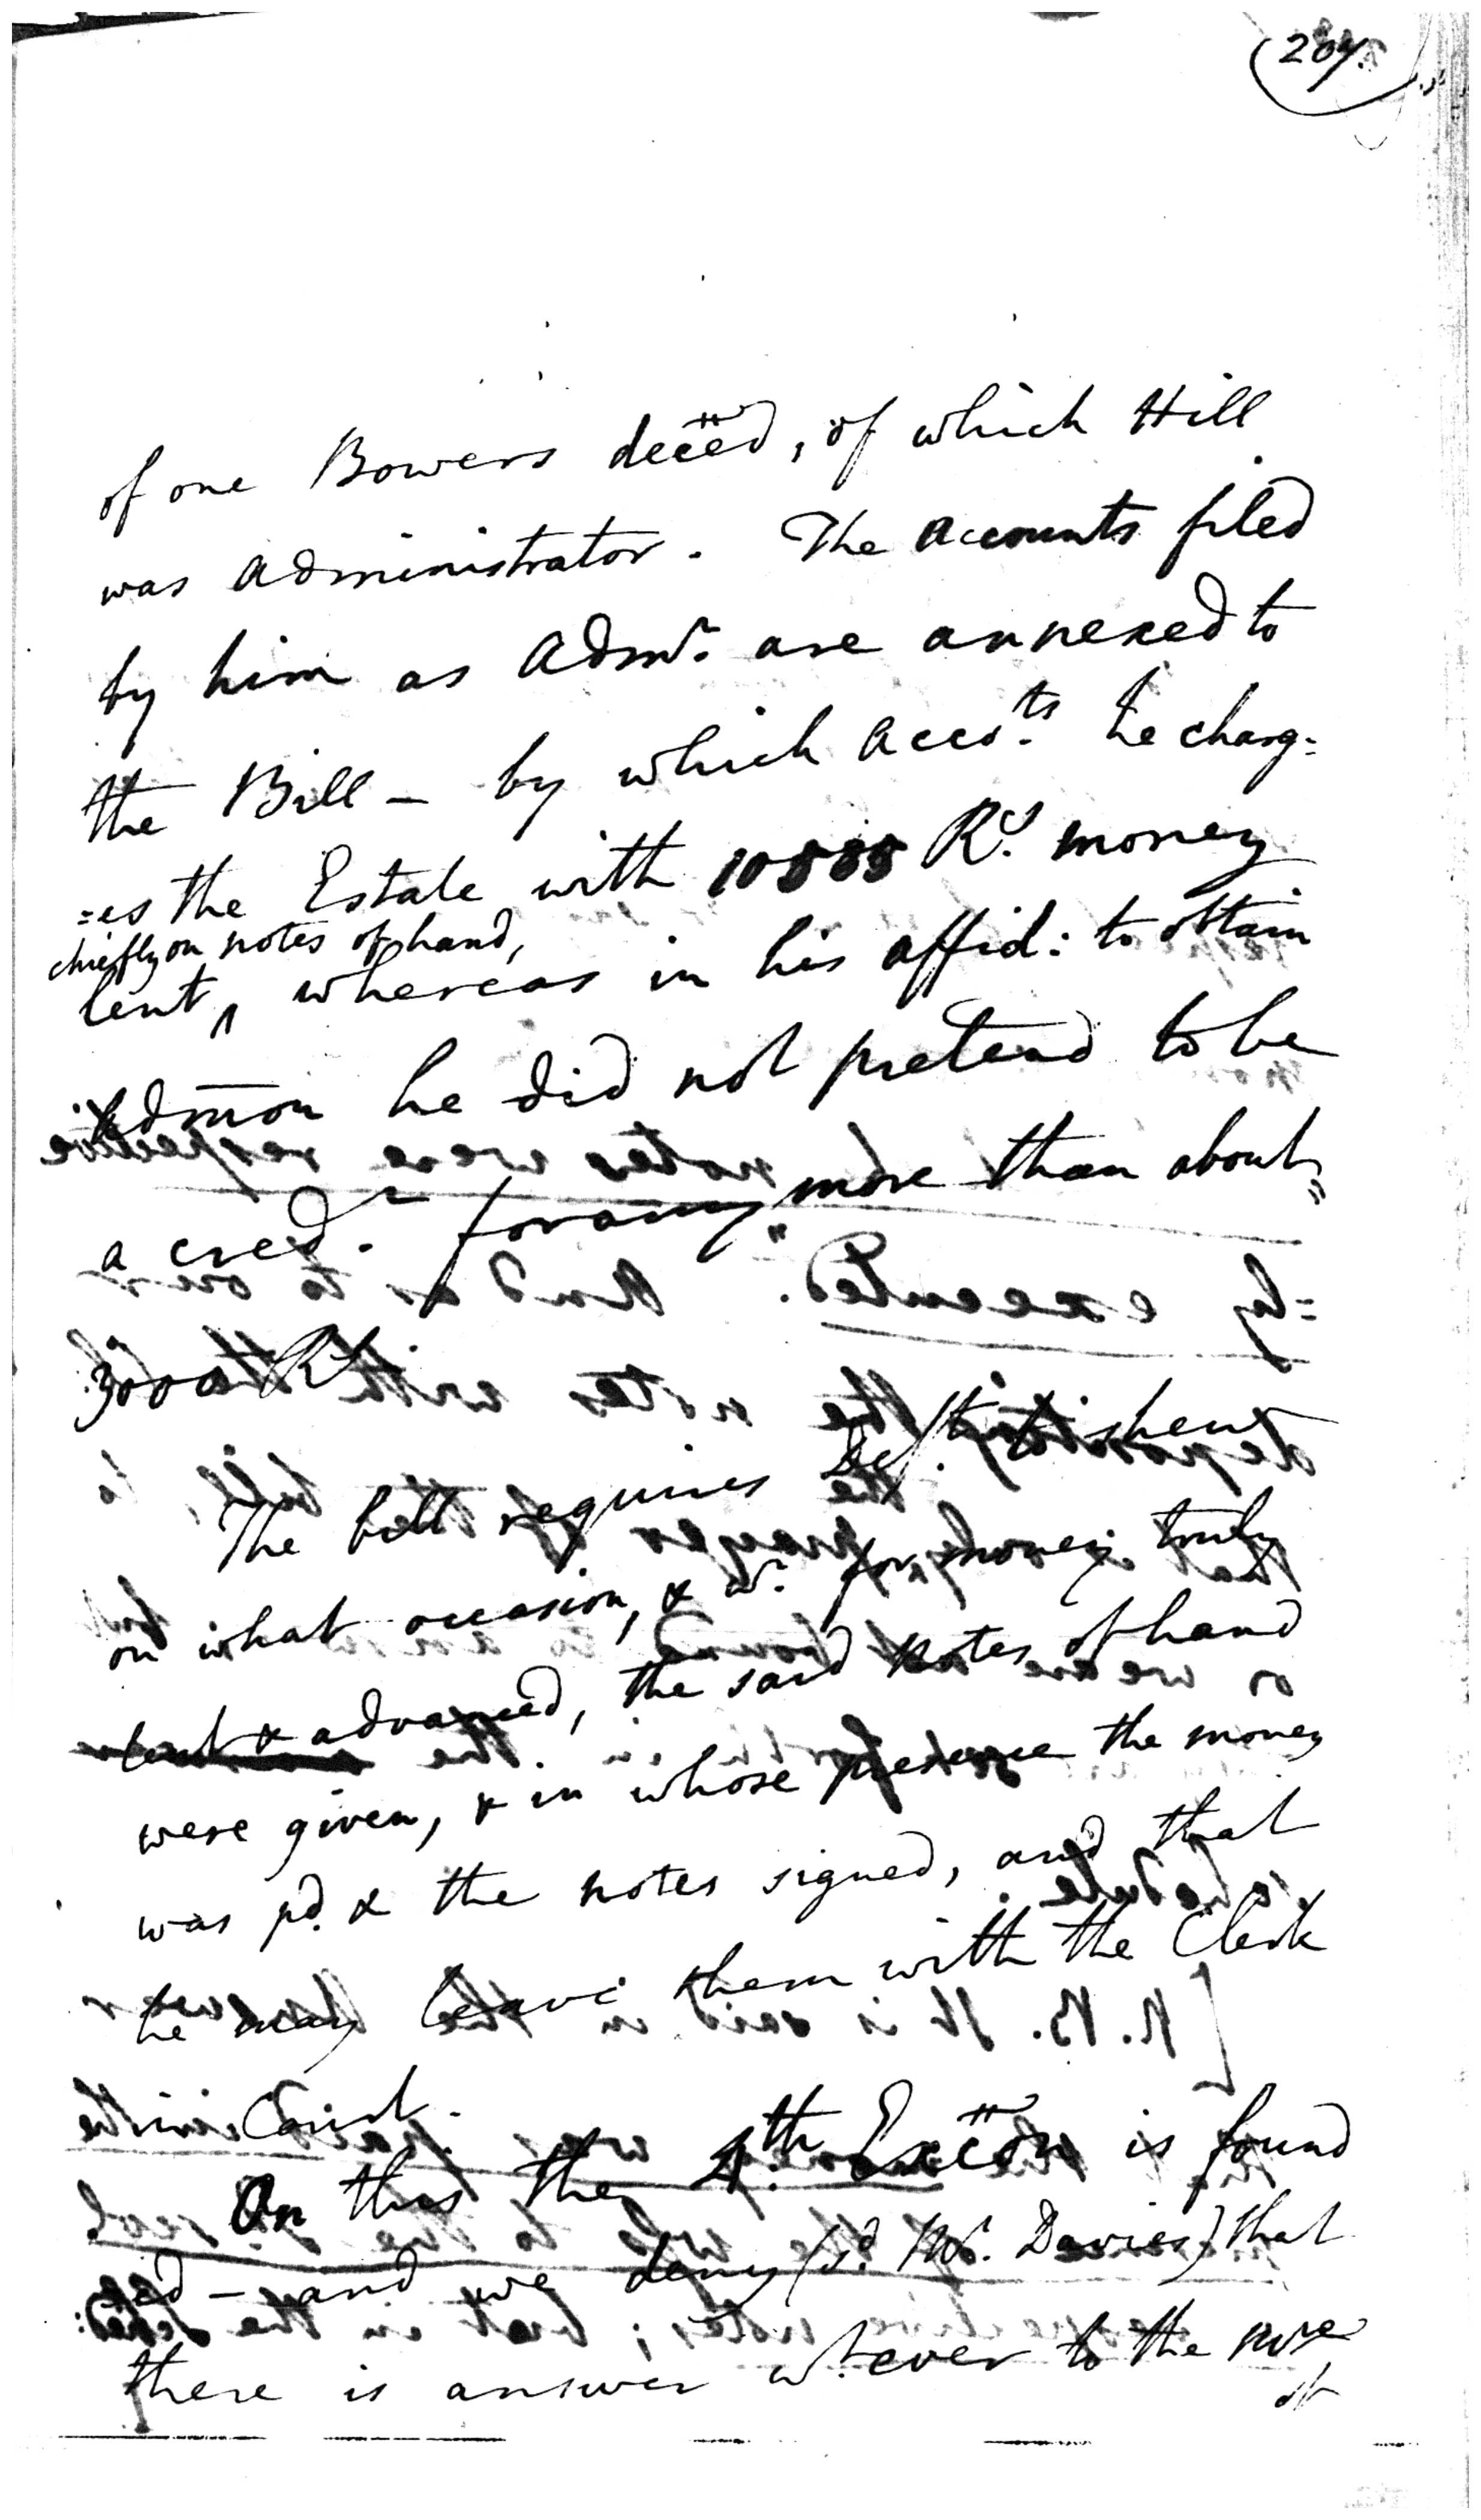 (204.
of one Bowers deceëd, of which Hill
was administrator. The accounts filed
by him as Admr. are annexed to
the Bill – by which accots. he charg=
=es the Estate with Rs. money
chiefly on notes of hand,
lent, ^ whereas in his affid: to obtain
Admōn he did not pretend to be
a credr. for any "more than about"
3000 Rs.
The bill requires Deft. to shew
on what occasion, & wr. for money truly
lent & advanced, the said notes of hand
were given, & in whose presence the money
was pd. & the notes signed, and that
he may leave them with the Clerk
in Court.
On this the 4th. Excëon is found
=ed – and we deny (sd. Mr. Davies) that
there is answer wt.ever to the
of